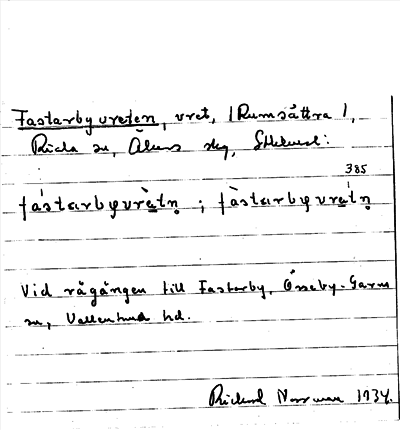 Fastarbyvreten, vret, /Rumsättra/,
Riala sn, Åkers skg, Sthlmsl:
385
fástarbyvrètn̥ ; fàstarbyvrétn̥
Vid rågången till Fastarby, Össeby-Garn
sn, Vallentuna hd.
Rickard 1934.